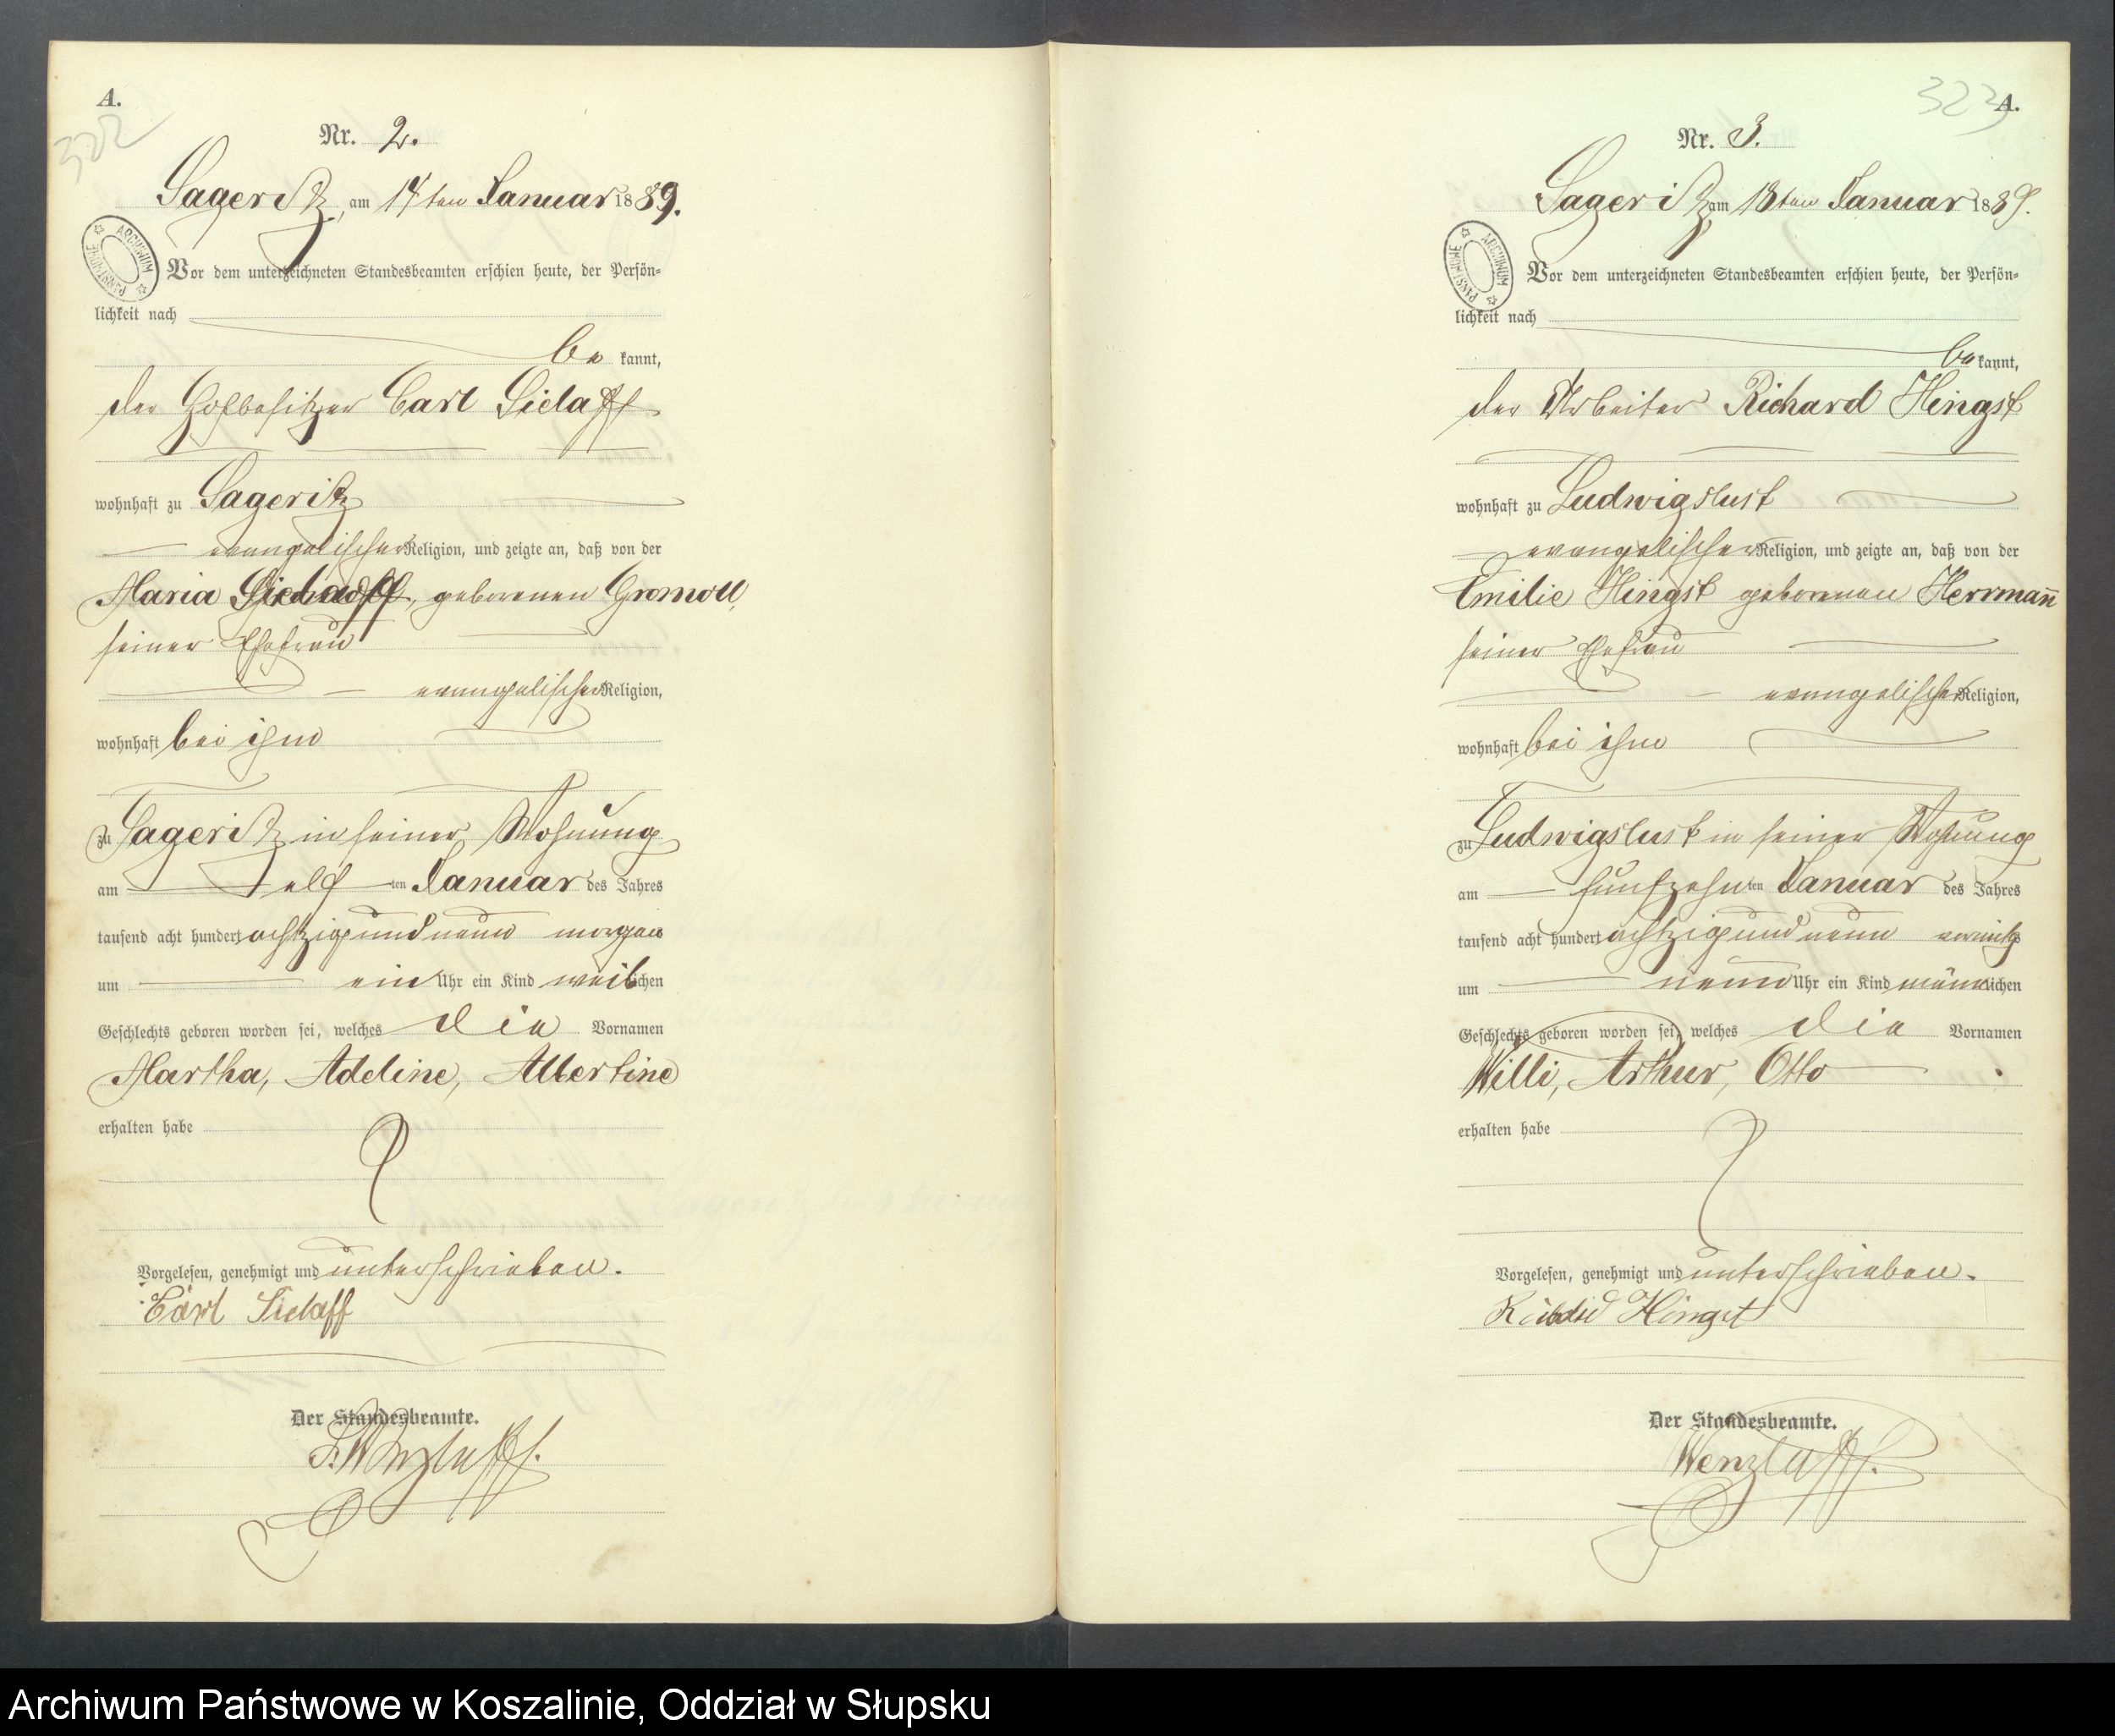 A.
322
Nr. 2.
Sageritz, am 14ten Januar 1889.
Vor dem unterzeichneten Standesbeamten erschien heute, der Persön=
lichkeit nach
be kannt,
der Hofbesitzer Carl Sielaff
wohnhaft zu Sageritz
evangelischer Religion, und zeigte an, daß von der
Maria Sielaff, geborenen Gromoll,
seiner Ehefrau
evangelischer Religion,
wohnhaft bei ihm
zu Sageritz in seiner Wohnung
am elf ten Januar des Jahres
tausend acht hundert achtzig und neun morgens
um ein Uhr ein Kind weiblichen
Geschlechts geboren worden sei, welches die Vornamen
Martha, Adeline, Albertine
erhalten habe
Vorgelesen, genehmigt und unterschrieben.
Carl Sielaff
Der Standesbeamte.
Wenzlaff.
ARCHIWUM PAŃSTWOWE
323
A.
Nr. 3.
Sageritz am 18ten Januar 1889.
Vor dem unterzeichneten Standesbeamten erschien heute, der Persön=
lichkeit nach
be kannt,
der Arbeiter Richard Hingst
wohnhaft zu Ludwigslust
evangelischer Religion, und zeigte an, daß von der
Emilie Hingst geborenen Herrmann̄
seiner Ehefrau
evangelischer Religion,
wohnhaft bei ihm
zu Ludwigslust in seiner Wohnung
am fünfzehn ten Januar des Jahres
tausend acht hundert achtzig und neun vormittgs
um neun Uhr ein Kind männlichen
Geschlechts geboren worden sei, welches die Vornamen
Willi, Arthur, Otto
erhalten habe
Vorgelesen, genehmigt und unterschrieben.
Hingst
Der Standesbeamte.
Wenzlaff.
ARCHIWUM PAŃSTWOWE
Archiwum Państwowe w Koszalinie, Oddział w Słupsku